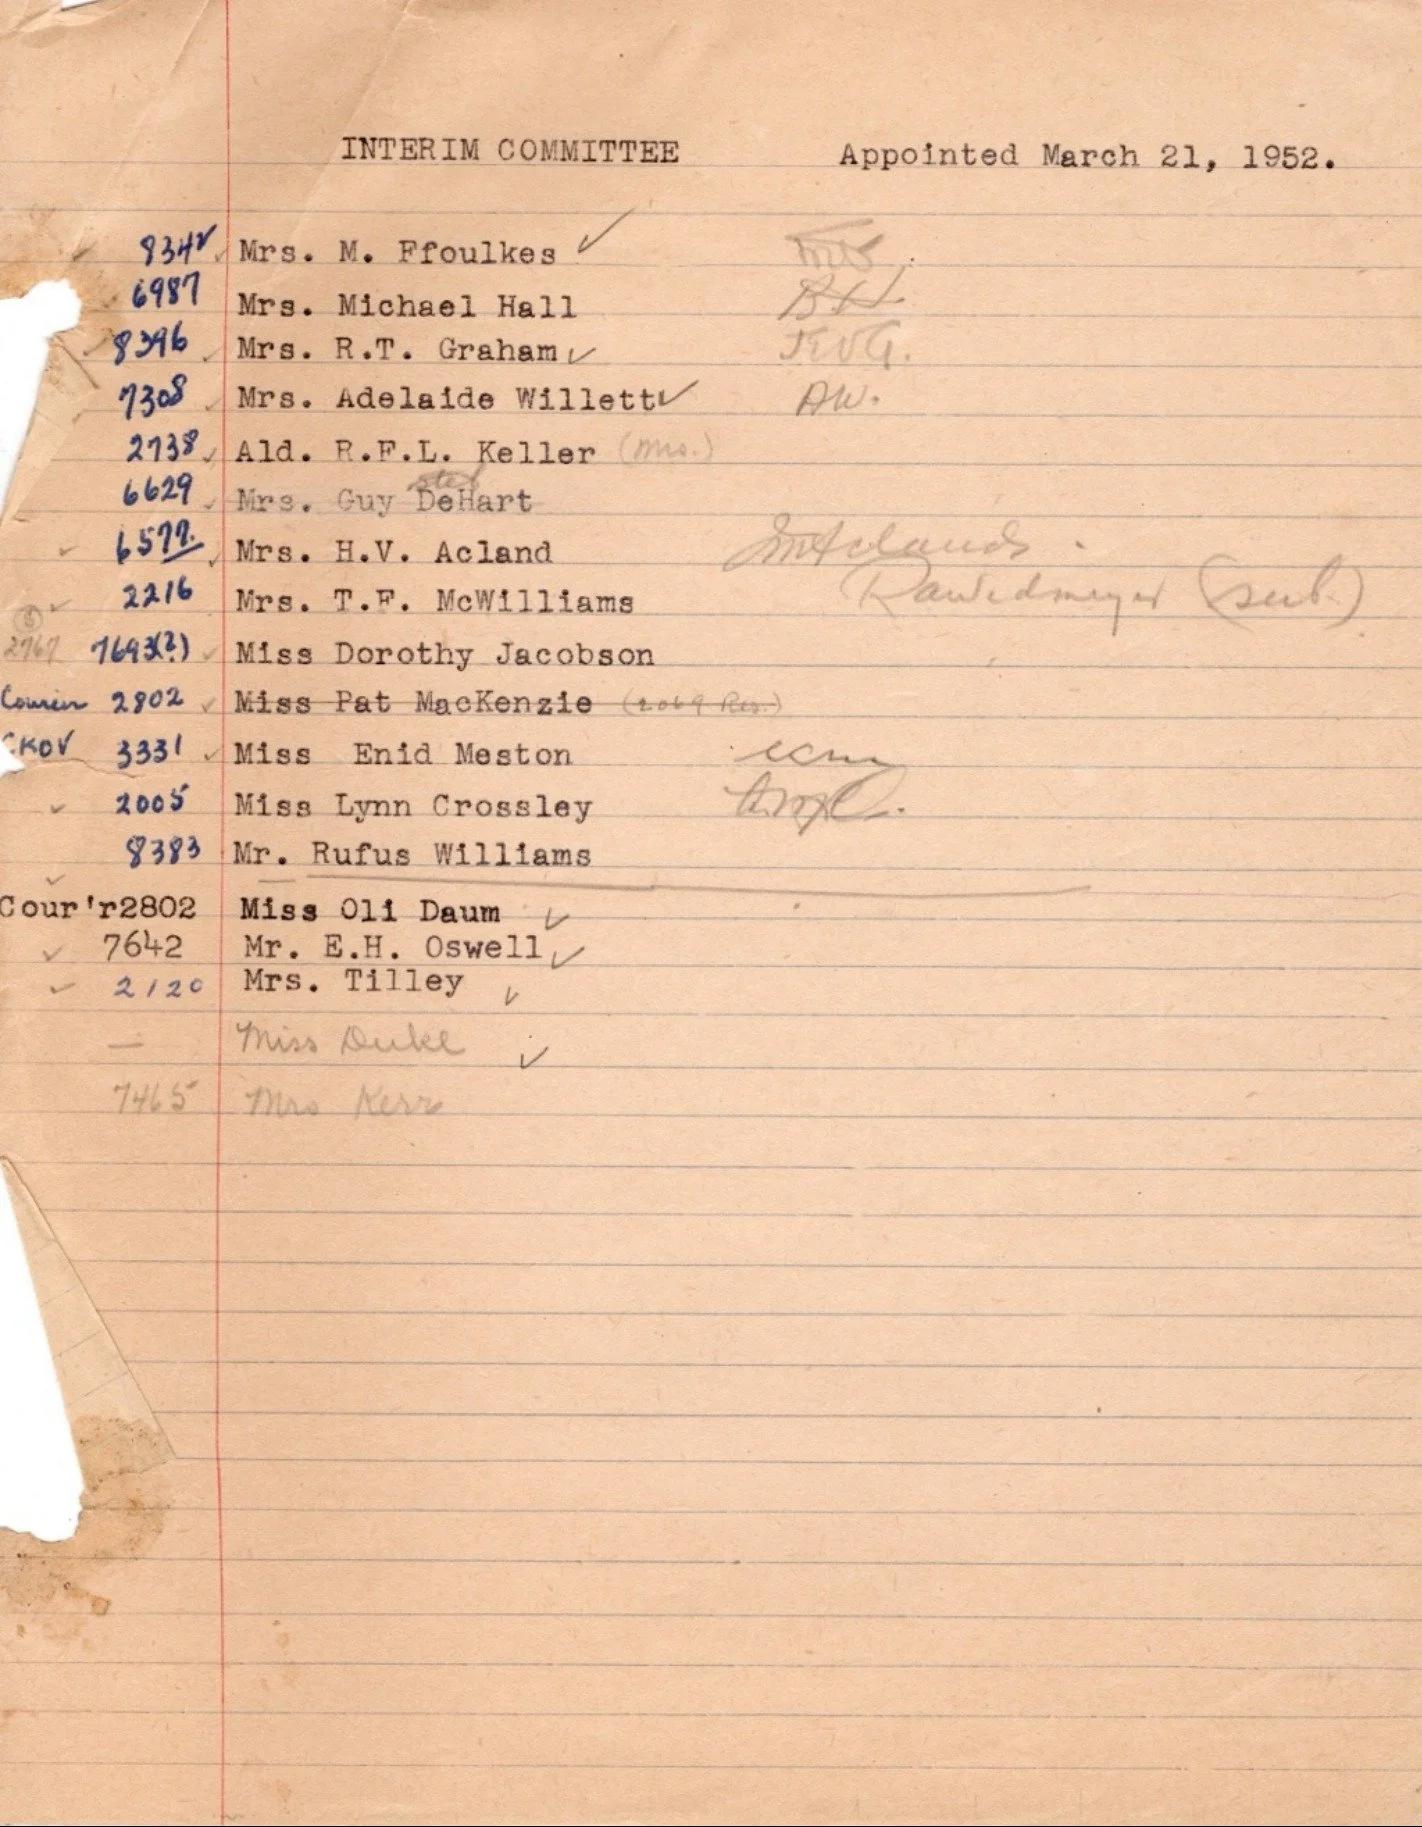 INTERIM COMMITTEE Appointed March 21, 1952.
8342 Mrs. M. Ffoulkes
6987 Mrs. Michael Hall BH
8396 Mrs. R.T. Graham
7308 Mrs. Adelaide Willett AW.
2738 Ald. R.F.L. Keller (Mrs.)
6629 Mrs. Guy DeHart
6577. Mrs. H.V. Acland
2216 Mrs. T.F. McWilliams (sub.)
2767 7693(?) Miss Dorothy Jacobson
Courier 2802 Miss Pat MacKenzie (2069 Res.)
CKOV 3331 Miss Enid Meston ecm
2005 Miss Lynn Crossley
8383 Mr. Rufus Williams
Cour'r2802 Miss Oli Daum
7642 Mr. E.H. Oswell
2120 Mrs. Tilley
— Miss Duke
7465 Mrs Kerr